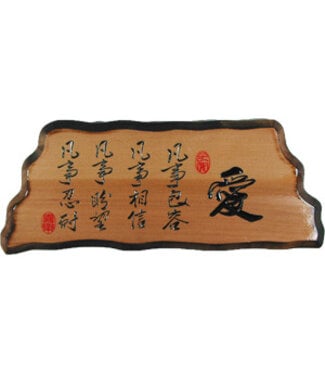 愛
凡事包容
凡事相信
凡事盼望
凡事忍耐